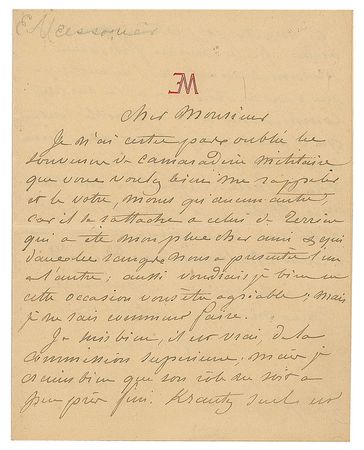 E Meissonier
EM
Cher Monsieur
Je n'ai certes pas oublié le
souvenir de camaraderie militaire
que vous voulez bien me rappeler
et le votre, moins qu'aucun autre,
car il se rattache à celui de
qui a été mon plus cher ami & qui
dans les rangs nous a présenté l'un
à l'autre; aussi voudrais je bien en
cette occasion vous être agréable; mais
je ne sais comment faire.
Je suis bien, il est vrai, de la
commission supérieure; mais je
crains bien que son rôle ne soit à
peu près fini. Krantz seul est